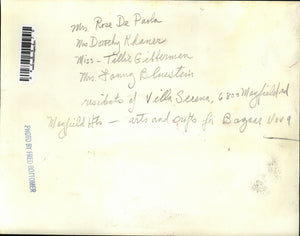 Mrs Rose De Paola
Mrs Dorothy Khaner
Miss - Tillie Gitterman
Mrs. Fanny Bluestein
residents of Villa Serena, 6800 Mayfield Rd
Mayfield Hts - arts and crafts for Bazaar Nov 9
PHOTO BY FRED BOTTOMER